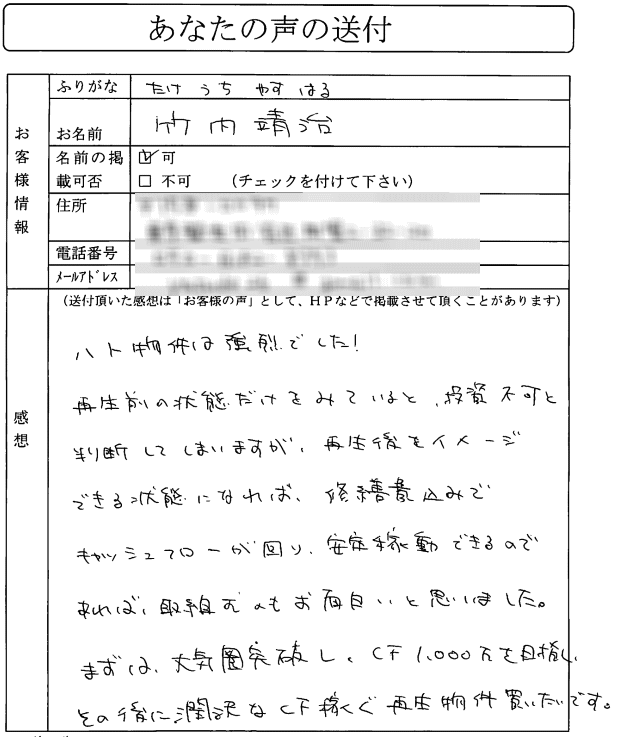 あなたの声の送付
お客様情報
ふりがな たけ うち やす はる
お名前 竹内靖治
名前の掲載可否 ☑ 可
□ 不可 (チェックを付けて下さい)
住所
電話番号
メールアドレス
感想
(送付頂いた感想は「お客様の声」として、HPなどで掲載させて頂くことがあります)
ハト物件は強烈でした!
再生前の状態だけをみていると、投資不可と
判断してしまいますが、再生後をイメージ
できる状態になれば、修繕費込みで
キャッシュフローが回り、安定稼動できるので
あれば、取組むのもお面白いと思いました。
まずは、大気圏突破し、CF1,000万を目指し、
その後に潤沢なCF稼ぐ再生物件買いたいです。